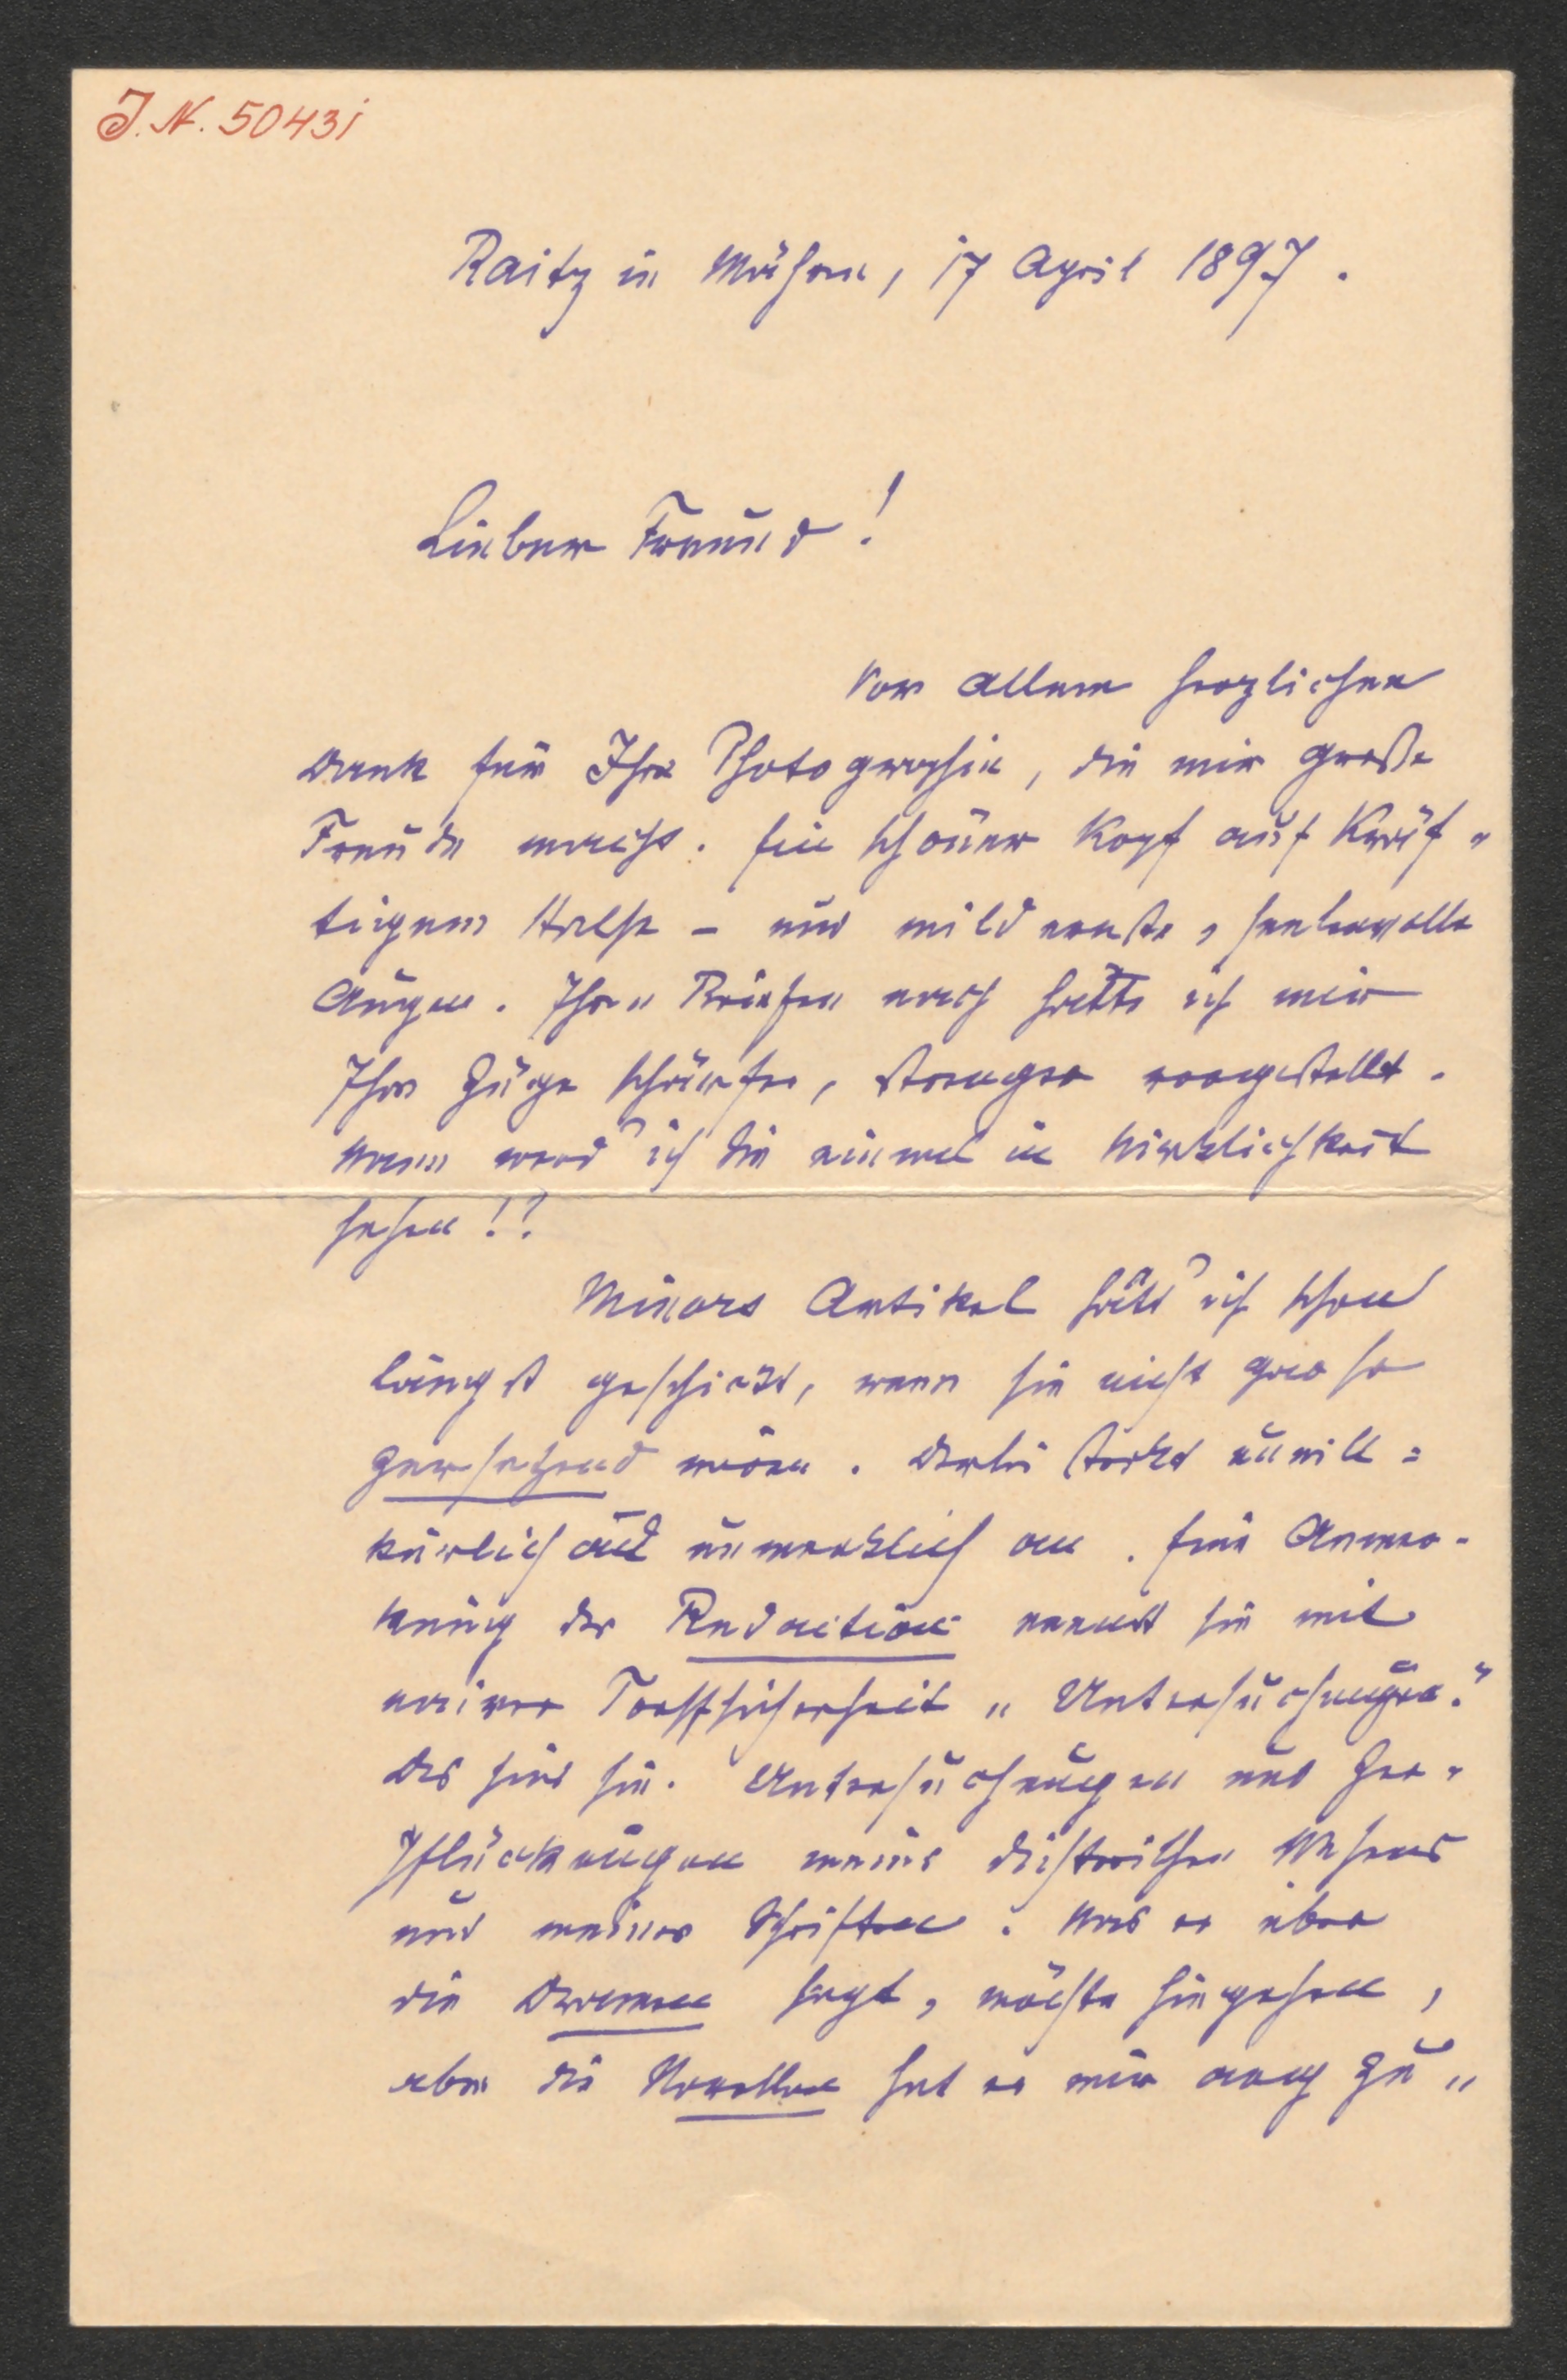 J. N. 50431
Raitz in Mähren, 17 April 1897.
Lieber Freund!
Vor allem herzlichen
Dank für Ihre Photographie, die mir große
Freude macht. Ein schöner Kopf auf kräf-
tigem Halse – und mild ernste, seelenvolle
Augen. Ihren Briefen nach hätte ich mir
Ihre Züge schärfer, strenger vorgestellt.
Wann werd' ich Sie einmal in Wirklichkeit
sehen!?
Minors Artikel hätt' ich schon
längst geschickt, wenn sie nicht gar so
zersetzend wären. Derlei steckt unwill=
kürlich und unmerklich an. Eine Anmer-
kung der Redaction nennt sie mit
naiver Treffsicherheit „Untersuchungen."
Das sind sie. Untersuchungen und Zer-
pflückungen meines dichterischen Wesens
und meiner Schriften. Was er über
die Dramen sagt, möchte hingehen,
aber die Novellen hat er mir arg zu-